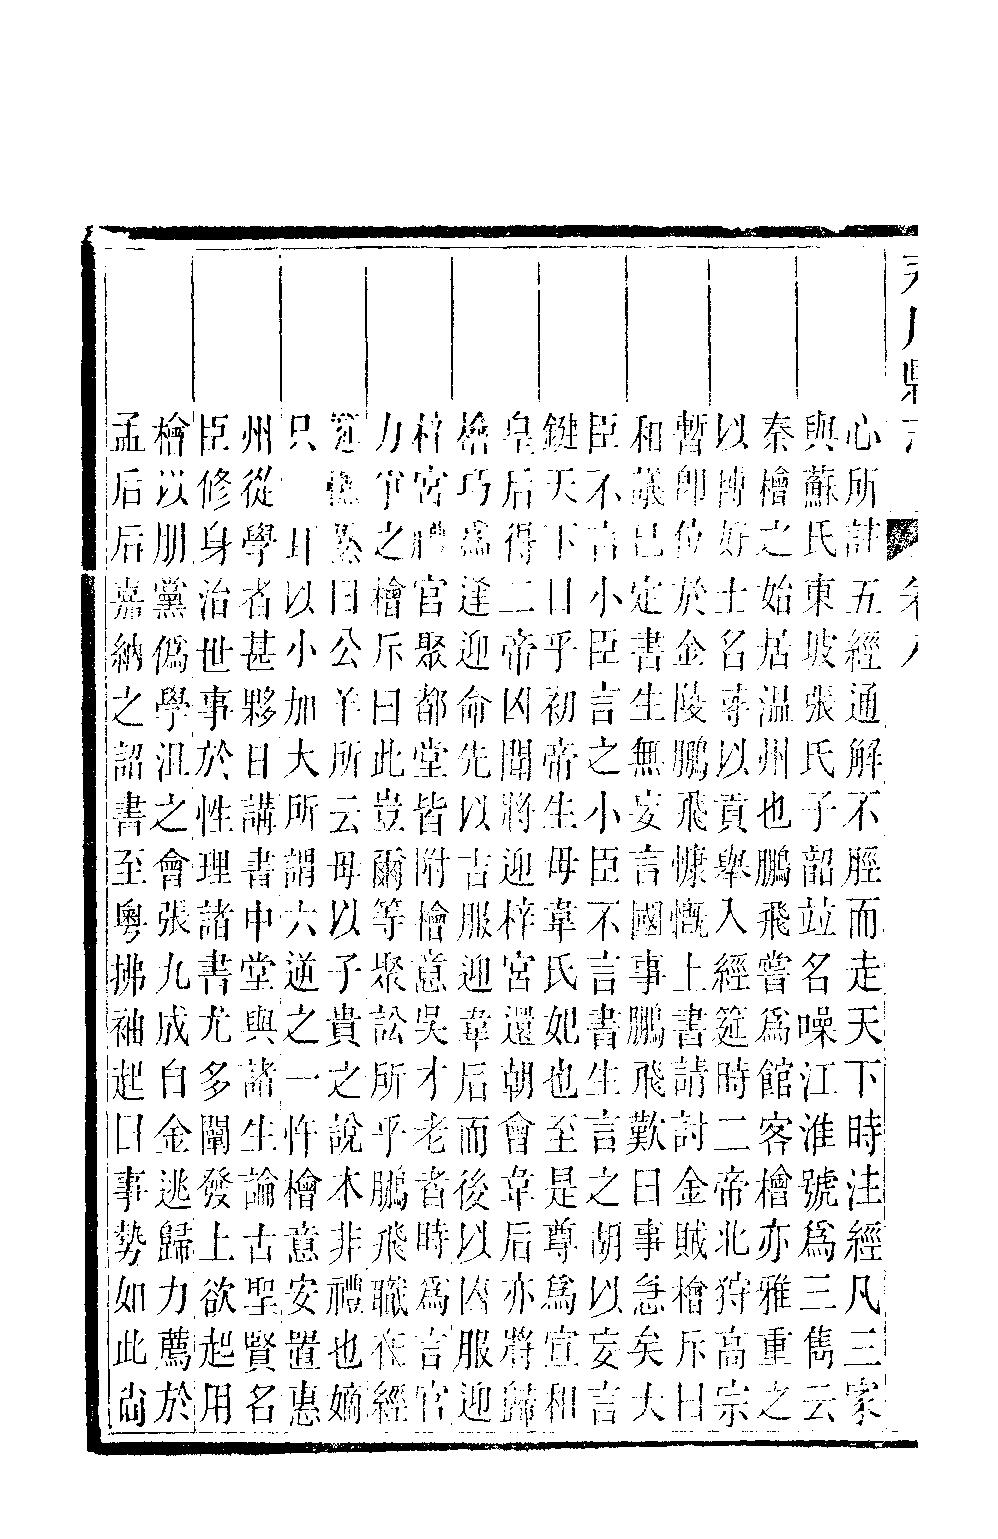 心所註五經通解不脛而走天下時注經凡三家
與蘇氏東坡張氏子韶竝名噪江淮號爲三雋云
秦檜之始居温州也鵬飛嘗爲館客檜亦雅重之
以博好士名尊以貢舉入經筵時二帝北狩高宗
暫卽位於金陵鵬飛慷慨上書請討金賊檜斥曰
和議已定書生無妄言國事鵬飛歎曰事急矣大
臣不言小臣言之小臣不言書生言之胡以妄言
鍵天下口乎初帝生母韋氏妃也至是尊爲宣和
皇后得二帝凶聞將迎梓宮還朝會韋后亦將歸
檜巧爲逢迎命先以吉服迎韋后而後以凶服迎
梓宮禮官聚都堂皆附檜意吳才老者時爲言官
力爭之檜斥曰此豈爾等聚訟所乎鵬飛職在經
筵 曰公羊所云母以子貴之說本非禮也嫡
只 耳以小加大所謂六逆之一忤檜意安置惠
州從學者甚夥日講書中堂與諸生論古聖賢名
臣修身治世事於性理諸書尤多闡發上欲起用
檜以朋黨僞學沮之會張九成自金逃歸力薦於
孟后后嘉納之詔書至粤拂袖起曰事勢如此尚
縣志
卷八